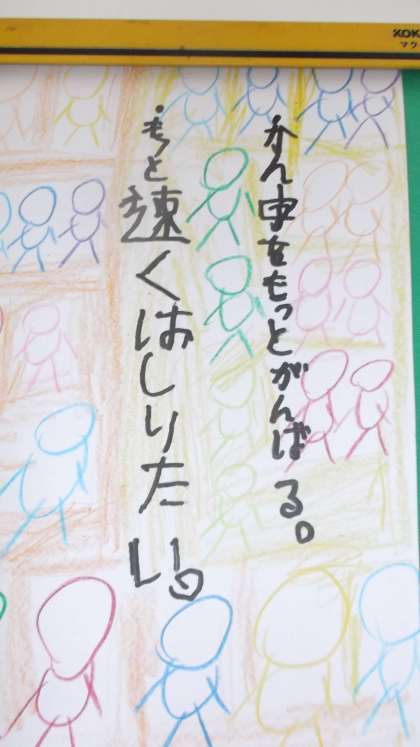 KOK
マク
・かん字をもっとがんばる。
・もっと速くはしりたい。